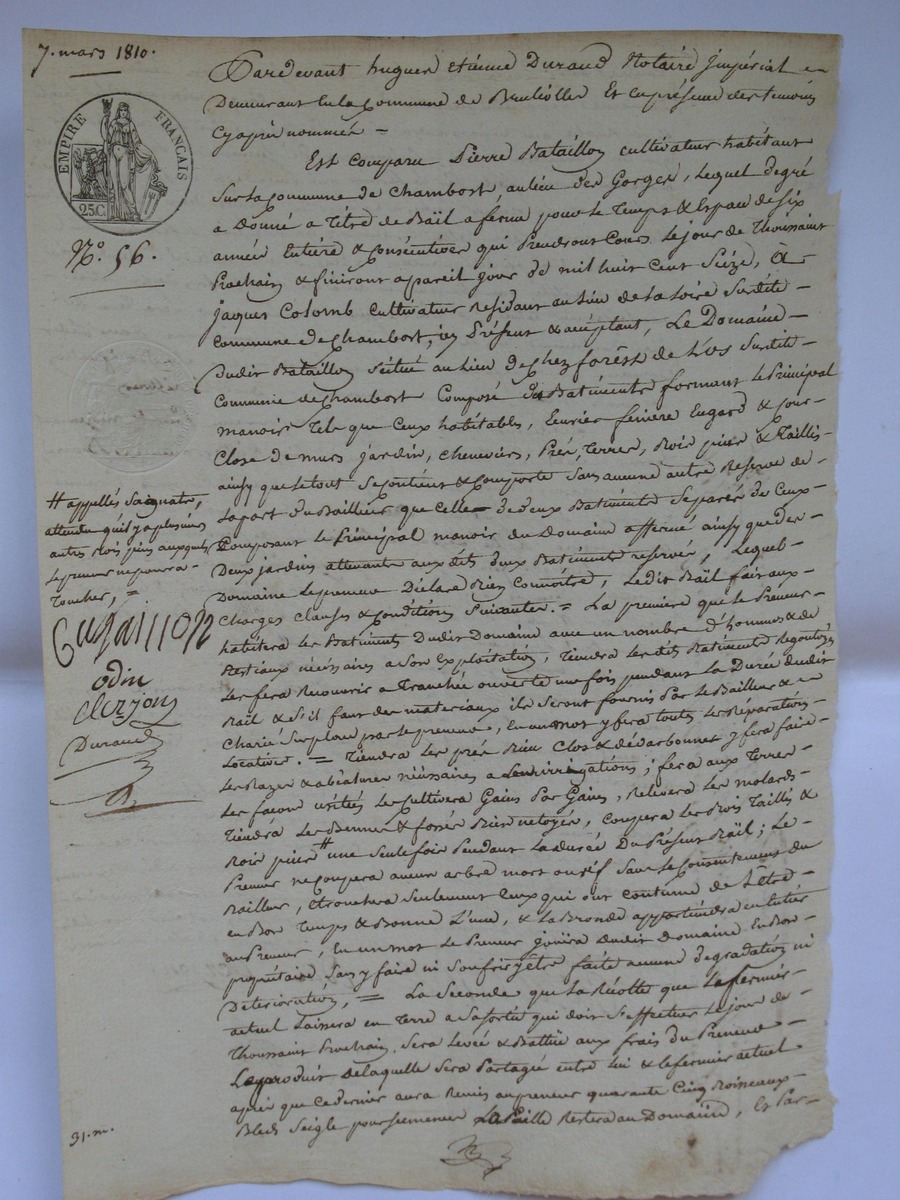 7. mars 1810.
EMPIRE FRANÇAIS
25C.
N.º 56.
Pardevant hugues etienne Durand Notaire jmpérial en
Demeurant En la Commune de Et en présence des temoins
Cy après nommés =
Est comparu Pierre Bataillon cultivateur habitant
Sur la Commune de Chambost, au lieu des Gorges, Lequel de gré
a Donné a Titre de Baïl a ferme pour le Temps & Espace de Six
année Entiere & Consécutives qui Prendront Cours le jour de Thoussaint
Prochain & finiront a pareil jour de mil huit Cent Seize, À
jacques Colomb Cultivateur Residant au Lieu de La Loire Susdite
Commune de Chambost, icy Présent & acceptant, Le Domaine
Dudit Bataillon Scitué au Lieu de chez forêst de Susdite
Commune de Chambost Composé des Batiments formant le Principal
manoir Tels que Ceux habitables, Ecurie feniere Engard & Cour
Close de murs jardin, cheneviers, Prés, Terres, Bois pins & Taillis
ainsy que le tout Se Contient & Comporte Sans aucune autre Reserve de
La part du Bailleur que Celle de deux Batiments Separés de Ceux
Composant le Principal manoir du Domaine affermé ainsy que des
Deux jardins attenants aux dits deux Batiments reservés, Lequel
Domaine Le preneur Déclare Bien Connoitre, Ledit Baïl fait aux
Charges Clauses & Conditions Suivantes. = La premiere que le Preneur
habitera les Batiments Dudit Domaine avec un nombre d'hommes & de
Bestiaux nécéssaires a Son Exploitation, Tiendra les dits Batiments
les fera Recouvrir a Tranchée ouverte une fois pendant la Durée dudit
Bail & S'il faut des materiaux ils Seront fournis Par le Bailleur &
Charié Sur place par le preneur, En un mot y fera toutes les Réparations
Locatives. = Tiendra les prés Bien Clos & y fera faire
les Razes & nécéssaires a Leur irrigations; fera aux Terres
les façons usitées les Cultivera Gains Par Gains, Relevera les molards
Tiendra les & fossés Bien netoyés, Coupera les Bois Taillis &
Bois pins # une Seule fois Pendant La durée Du Présent Baïl; Le
Preneur ne Coupera aucun arbre mort ou vif Sans le Consentement du
Bailleur, Etronchera Seulement Ceux qui ont Coutume de L'être
en Bon Temps & Bonne Lune, & la Bronde appartiendra en Entier
au Preneur, En un mot le Preneur joüira dudit Domaine En Bon
propriétaire Sans y faire ni Soufrir y être faite aucune dégradation ni
Déterioration, = La Seconde que la Récolte que le fermier
actuel Laissera en Terre a Sa Sortie qui doit S'effectuer le jour de
Thoussaint Prochain, Sera Levée & Battüe aux frais du Preneur
Le produit de laquelle Sera Partagé entre Lui & le fermier actuel
après que Ce dernier aura Remis au preneur quarante Cinq
Bled Seigle pour semence La Paille Restera au Domaine, & Par
# appellés Saignate,
attendu qu'il y a plusieurs
autres Bois pins auxquels
le preneur ne pourra
Toucher, =
odin
Clerjon
Durand
31. m.